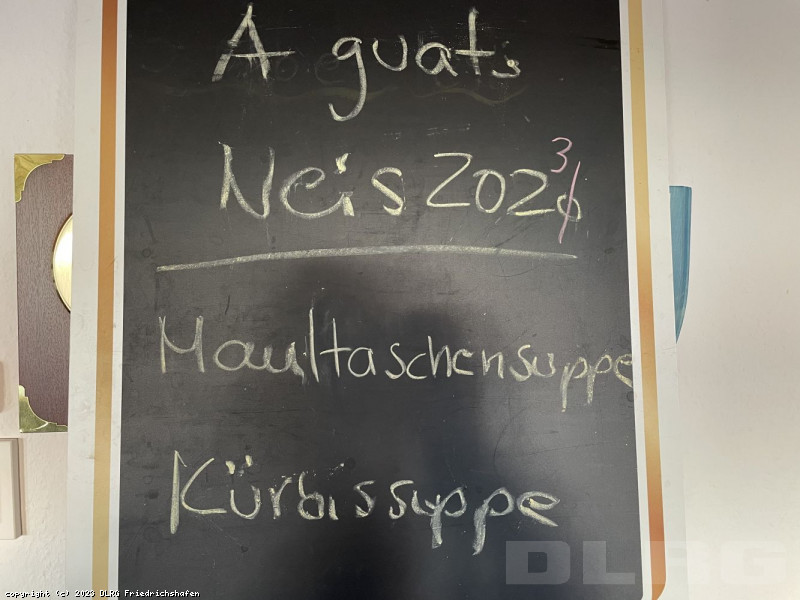 A guats
Neis 2023
Maultaschensuppe
Kürbissuppe
DLRG
copyright (c) 2023 DLRG Friedrichshafen